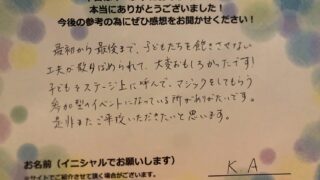 本当にありがとうございました!
今後の参考の為にぜひ感想をお聞かせください!
最初から最後まで、子どもたちを飽きさせない
工夫が散りばめられて、大変おもしろかったです!
子どもをステージ上に呼んで、マジックをしてもらう
参加型のイベントになっている所がありがたいです。
是非またご来校いただきたいと思います。
お名前(イニシャルでお願いします)
K.A
※サイトでご紹介させて頂く場合がございます。